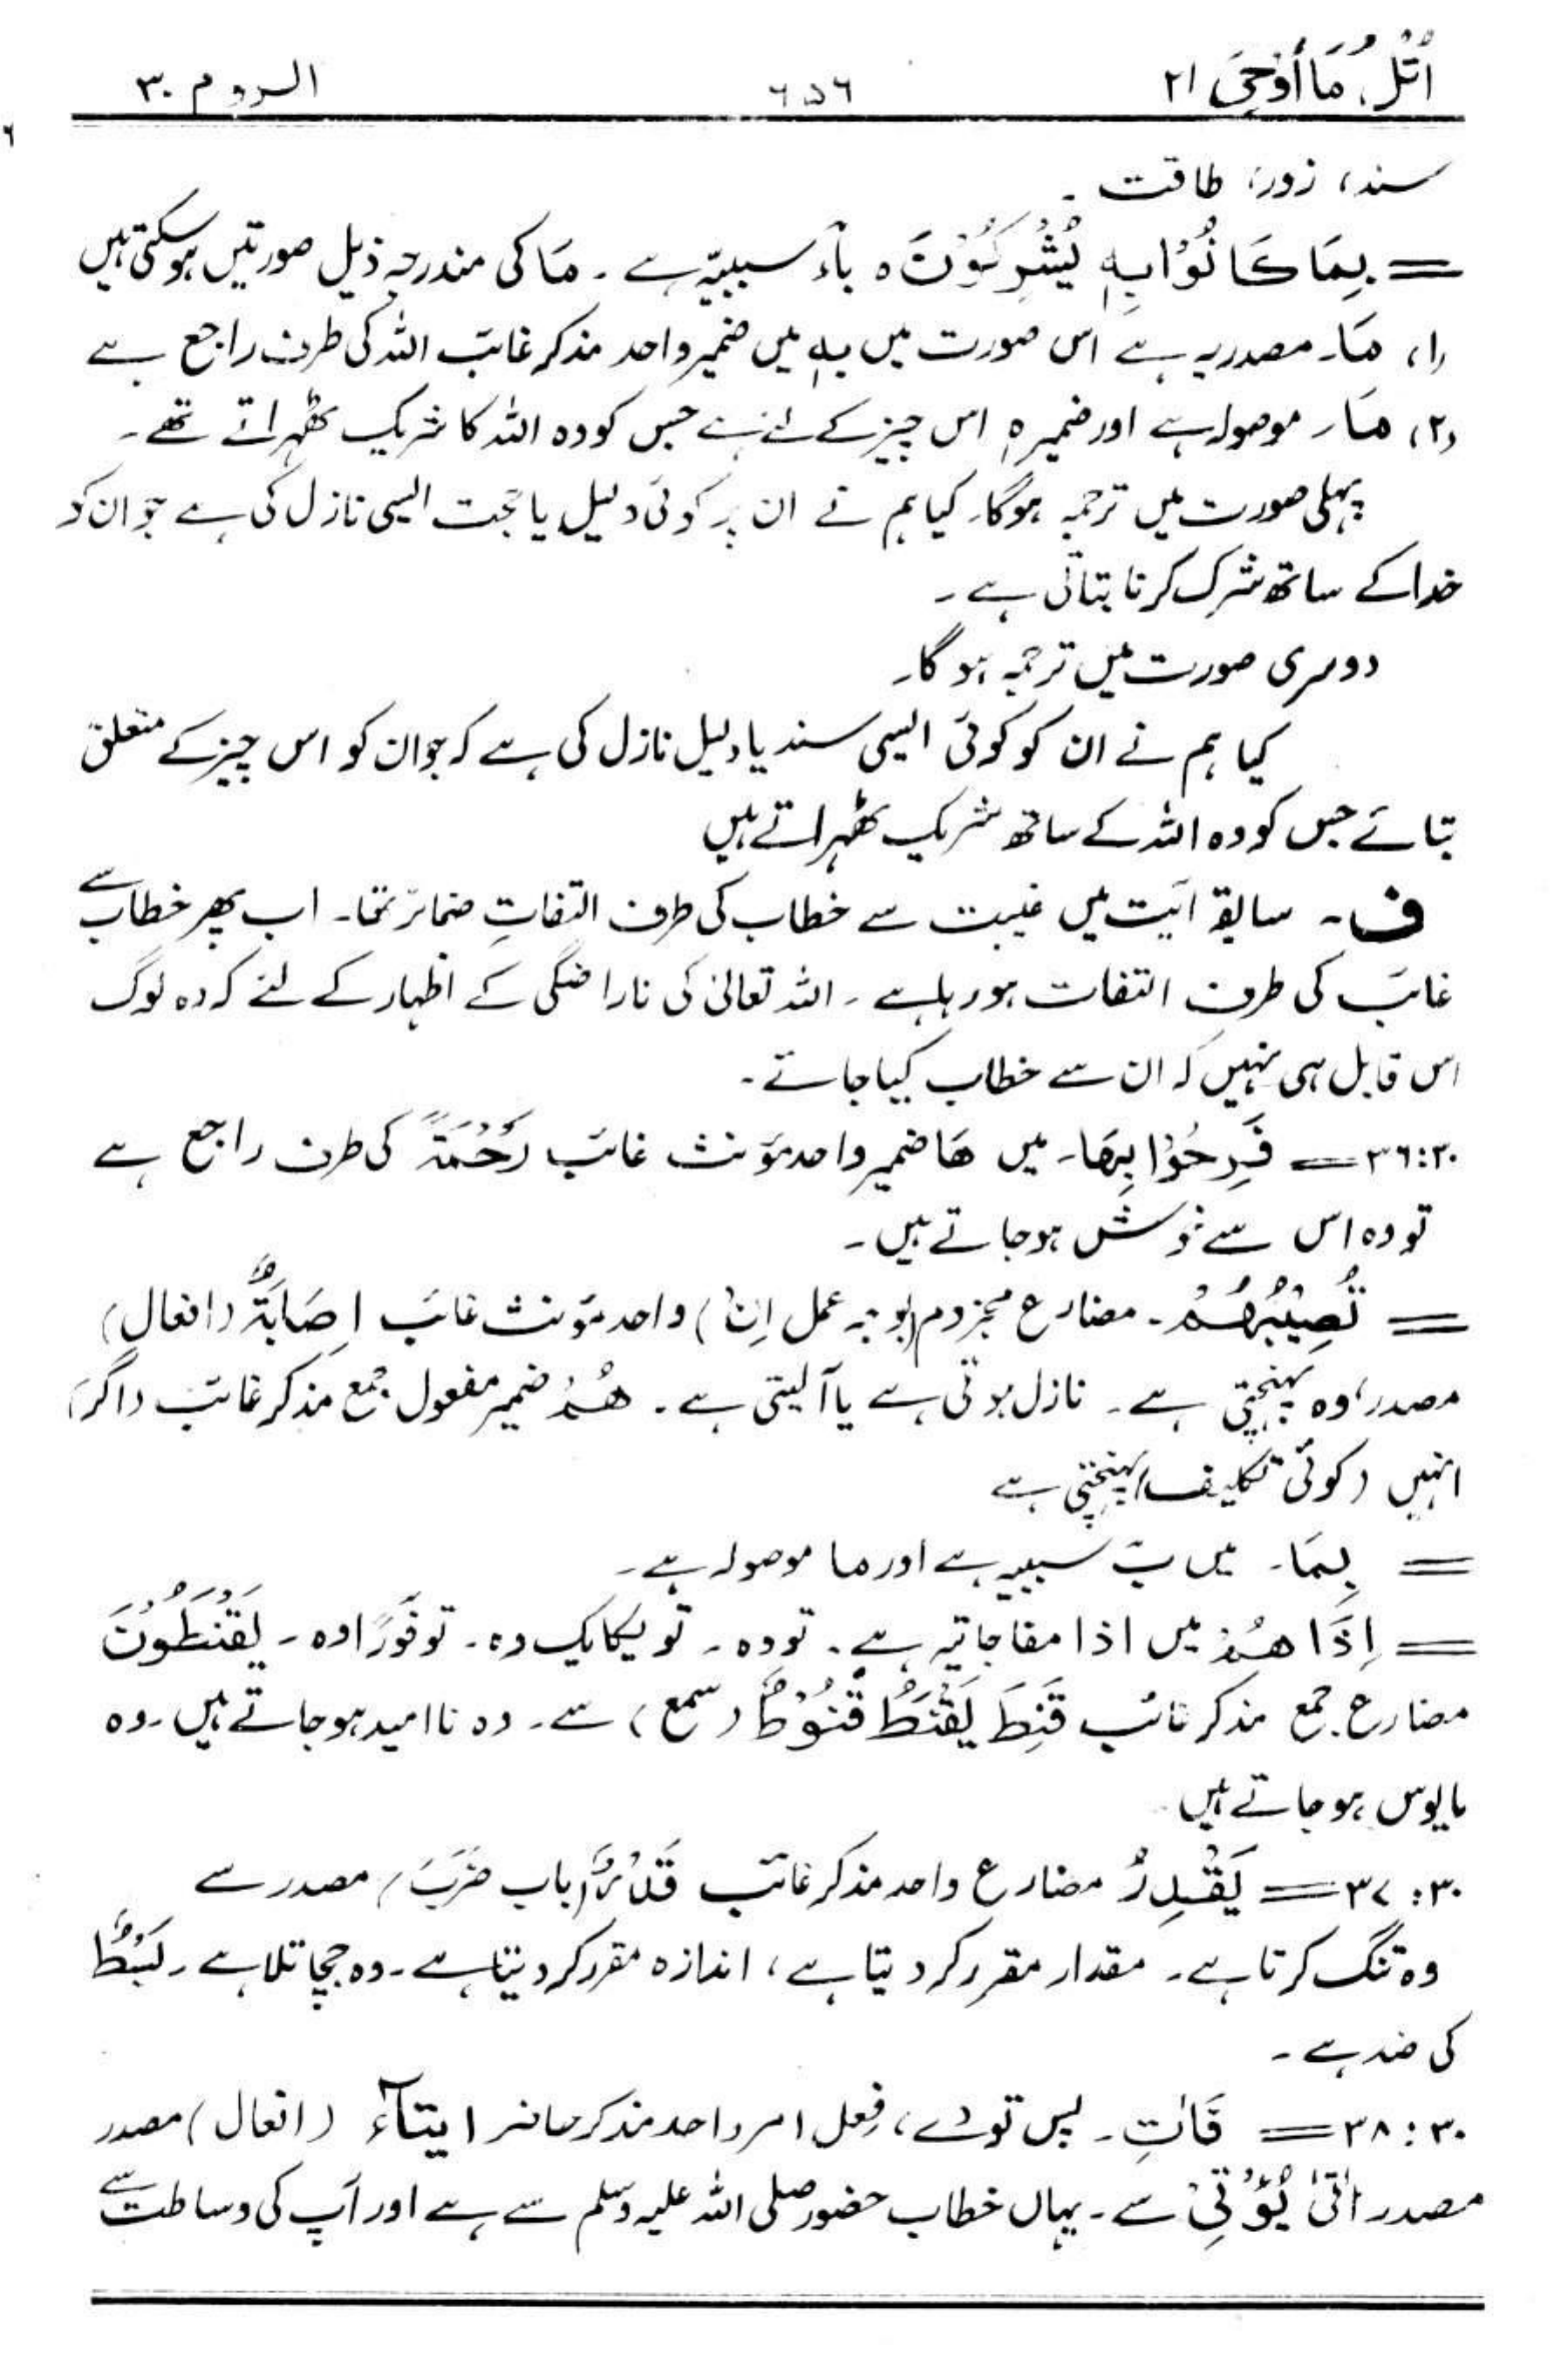 اُتْلُ مَا أُوْحِیَ ۲۱ ۶۵۶ الروم ۳۰
سند، زور، طاقت ۔
= بِمَا كَانُوْا بِهٖ يُشْرِكُوْنَ ہ باء سببیّہ ہے ۔ مَا کی مندرجہ ذیل صورتیں ہوسکتی ہیں
(۱) مَا۔ مصدریہ ہے اس صورت میں بِہٖ میں ضمیر واحد مذکر غائب اللہ کی طرف راجع ہے
(۲) مَا۔ موصولہ ہے اور ضمیر ہٖ اس چیز کے لئے ہے جس کو وہ اللہ کا شریک ٹھہراتے تھے ۔
پہلی صورت میں ترجمہ ہوگا۔ کیا ہم نے ان پر کوئی دلیل یا حجت ایسی نازل کی ہے جو ان کو
خدا کے ساتھ شرک کرنا بتاتی ہے ۔
دوسری صورت میں ترجمہ ہوگا۔
کیا ہم نے ان کو کوئی ایسی سند یا دلیل نازل کی ہے کہ جو ان کو اس چیز کے متعلق
بتائے جس کو وہ اللہ کے ساتھ شریک ٹھہراتے ہیں
ف۔ سابقہ آیت میں غیبت سے خطاب کی طرف التفاتِ ضمائر تھا۔ اب پھر خطاب سے
غائب کی طرف التفات ہو رہا ہے ۔ اللہ تعالیٰ کی ناراضگی کے اظہار کے لئے کہ وہ لوگ
اس قابل ہی نہیں کہ ان سے خطاب کیا جائے ۔
۳۰:۳۶ = فَرِحُوْا بِهَا۔ میں ھَا ضمیر واحد مؤنث غائب رَحْمَةً کی طرف راجع ہے
تو وہ اس سے خوش ہو جاتے ہیں ۔
= تُصِيْبُهُمْ ۔ مضارع مجزوم (بوجہ عمل اِنْ) واحد مؤنث غائب اِصَابَةٌ (افعال)
مصدر، وہ پہنچتی ہے ۔ نازل ہوتی ہے یا آلیتی ہے ۔ ھُمْ ضمیر مفعول جمع مذکر غائب (اگر)
انہیں (کوئی تکلیف) پہنچتی ہے
= بِمَا۔ میں بَ سببیہ ہے اور ما موصولہ ہے ۔
= اِذَا هُمْ میں اذا مفاجاتیہ ہے ۔ تو وہ ۔ تو یکایک وہ ۔ تو فورًا وہ ۔ يَقْنَطُوْنَ
مضارع جمع مذکر غائب قَنِطَ يَقْنَطُ قُنُوْطٌ (سمع) سے ۔ وہ ناامید ہو جاتے ہیں ۔ وہ
مایوس ہو جاتے ہیں
۳۰:۳۷ = يَقْدِرُ مضارع واحد مذکر غائب قَدْرٌ (باب ضَرَبَ) مصدر سے
وہ تنگ کرتا ہے ۔ مقدار مقرر کر دیتا ہے، اندازہ مقرر کر دیتا ہے ۔ وہ جچا تلا ہے ۔ بَسْطٌ
کی ضد ہے ۔
۳۰:۳۸ = فَاٰتِ ۔ پس تو دے، فعل امر واحد مذکر حاضر ایتآء (افعال) مصدر
مصدر اٰتٰی یُؤْتِیْ سے ۔ یہاں خطاب حضور صلی اللہ علیہ وسلم سے ہے اور آپ کی وساطت سے